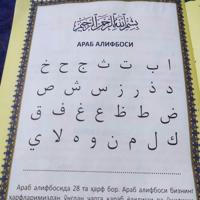 بسم الله الرحمن الرحيم
АРАБ АЛИФБОСИ
ا ب ت ث ج ح خ
د ذ ر ز س ش ص
ض ط ظ ع غ ف ق
ك ل م ن و ه لا ي
Араб алифбосида 28 та ҳарф бор. Араб алифбоси бизнинг